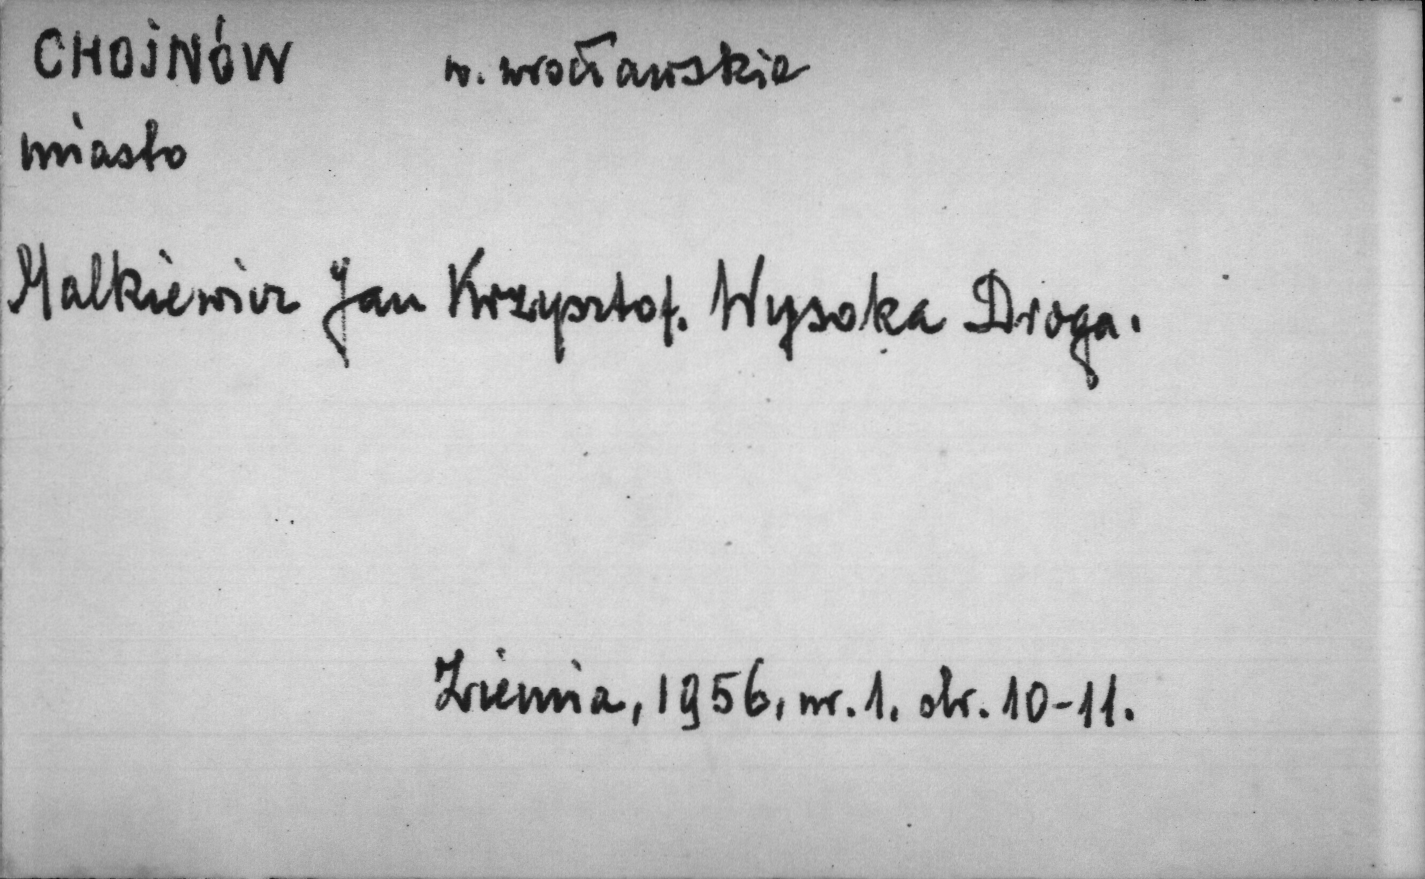 CHOJNÓW w. wrocławskie
miasto
Malkiewicz Jan Krzysztof. Wysoka Droga.
Ziemia, 1956, nr. 1. str. 10-11.